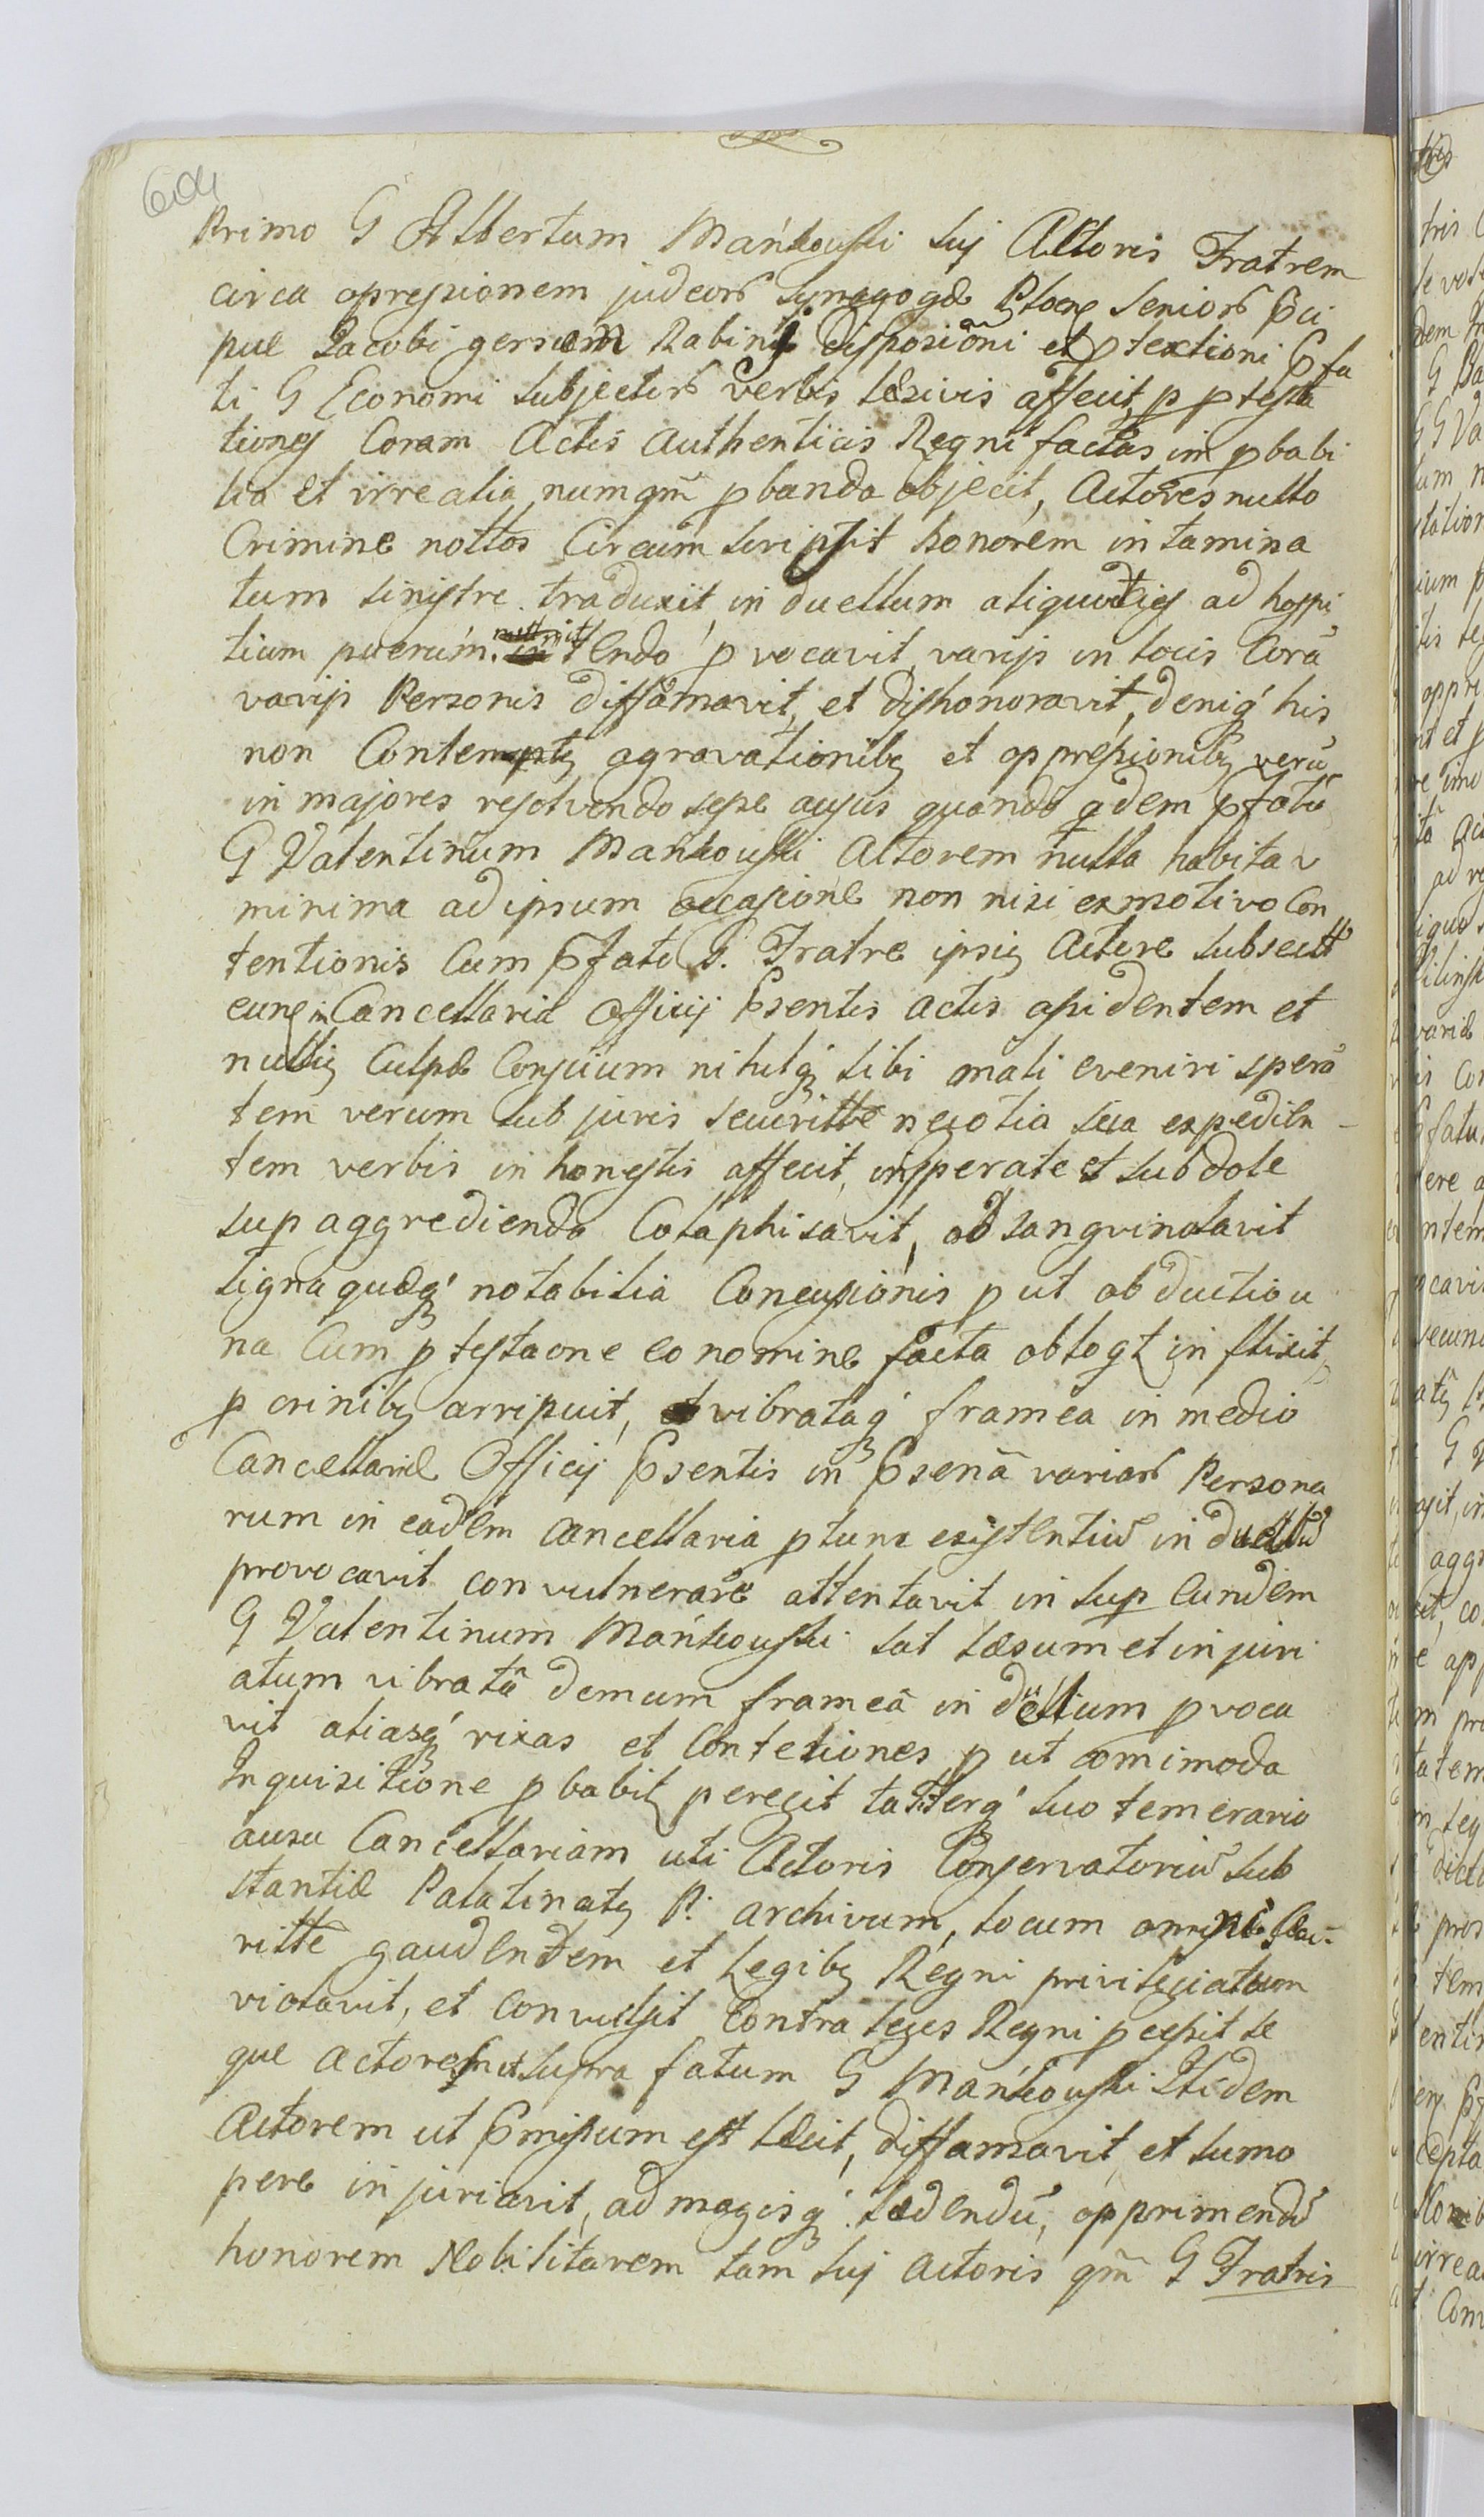 604
Primo G Albertum Mańkouski sui Actoris Fratrem
circa opressionem judeorũ Synagogæ Plocen seniorũ Pci
pue Jacobi gersiem Rabini disposiõni et ptextioni Pfa
ti G Economi subjectorũ verbis læsivis affecit, p ptesta
tiones Coram Actis Authenticis Regni factas im pbabi
lia et irrealia numqm̃ pbanda objecit, Actores nullo
Crimine nottos Circum scripsit honorem intamina
tum sinistre traduxit, in duellum aliquoties ad hospi
tium puerum mittendo pvocavit, varijs in locis Corã
varijs Personis diffamavit, et dishonoravit, deniq his
non Contemptq agravationibq et oppressionibq verũ
in majores resolvendo sese ausus quando qdem Pfatũ
G Valentinum Mańkouski Actorem nulla habita
minima ad ipsum occasione non nisi ex motivo Con
tentionis Cum Pfato G. Fratre ipsiq Actore subsecutæ
eunq in Cancellaria Officij Psentis actis assidentem et
nulliq Culpæ Conscium nihilq sibi mali eveniri sperã
tem verum sub juris securitte negotia sua expedien
tem verbis inhonestis affecit, insperate et subdole
sup aggrediendo Colaphisavit, ad sangvinolavit
signaquæq notabilia Concussionis put obductio u
na Cum ptestaone eo nomine facta obloqt inflixit,
p crinibq arripuit, vibrataq framea in medio
Cancellariæ Officij Psentis in Psenã variarũ Persona
rum in eadem cancellaria ptunc existentiũ in duellũ
provocavit convulnerare attentavit in sup Eundem
G Valentinum Mańkouski sat læsum et injuri
atum vibratã demum frameã in duellum pvoca
vit aliasq rixas et Contesiones, put omnimoda
Inquisitione pbabit, peregit taliterq suo temerario
ausu Cancellariam uti Actoris Conservatoriũ sub
stantiæ Palatinatq P. archivum, locum omni secu
ritte gaudentem et Legibq Regni privilegiatum
violavit, et convulsit Contra leges Regni pcessit se
que actorem ut supra fatum G Mańkouski Itidem
Actorem ut Pmissum est læsit, diffamavit, et sumo
pere injuriavit, ad magisq lædendũ, opprimendũ
honorem Nobilitarem tam sui actoris qm̃ G Fratris